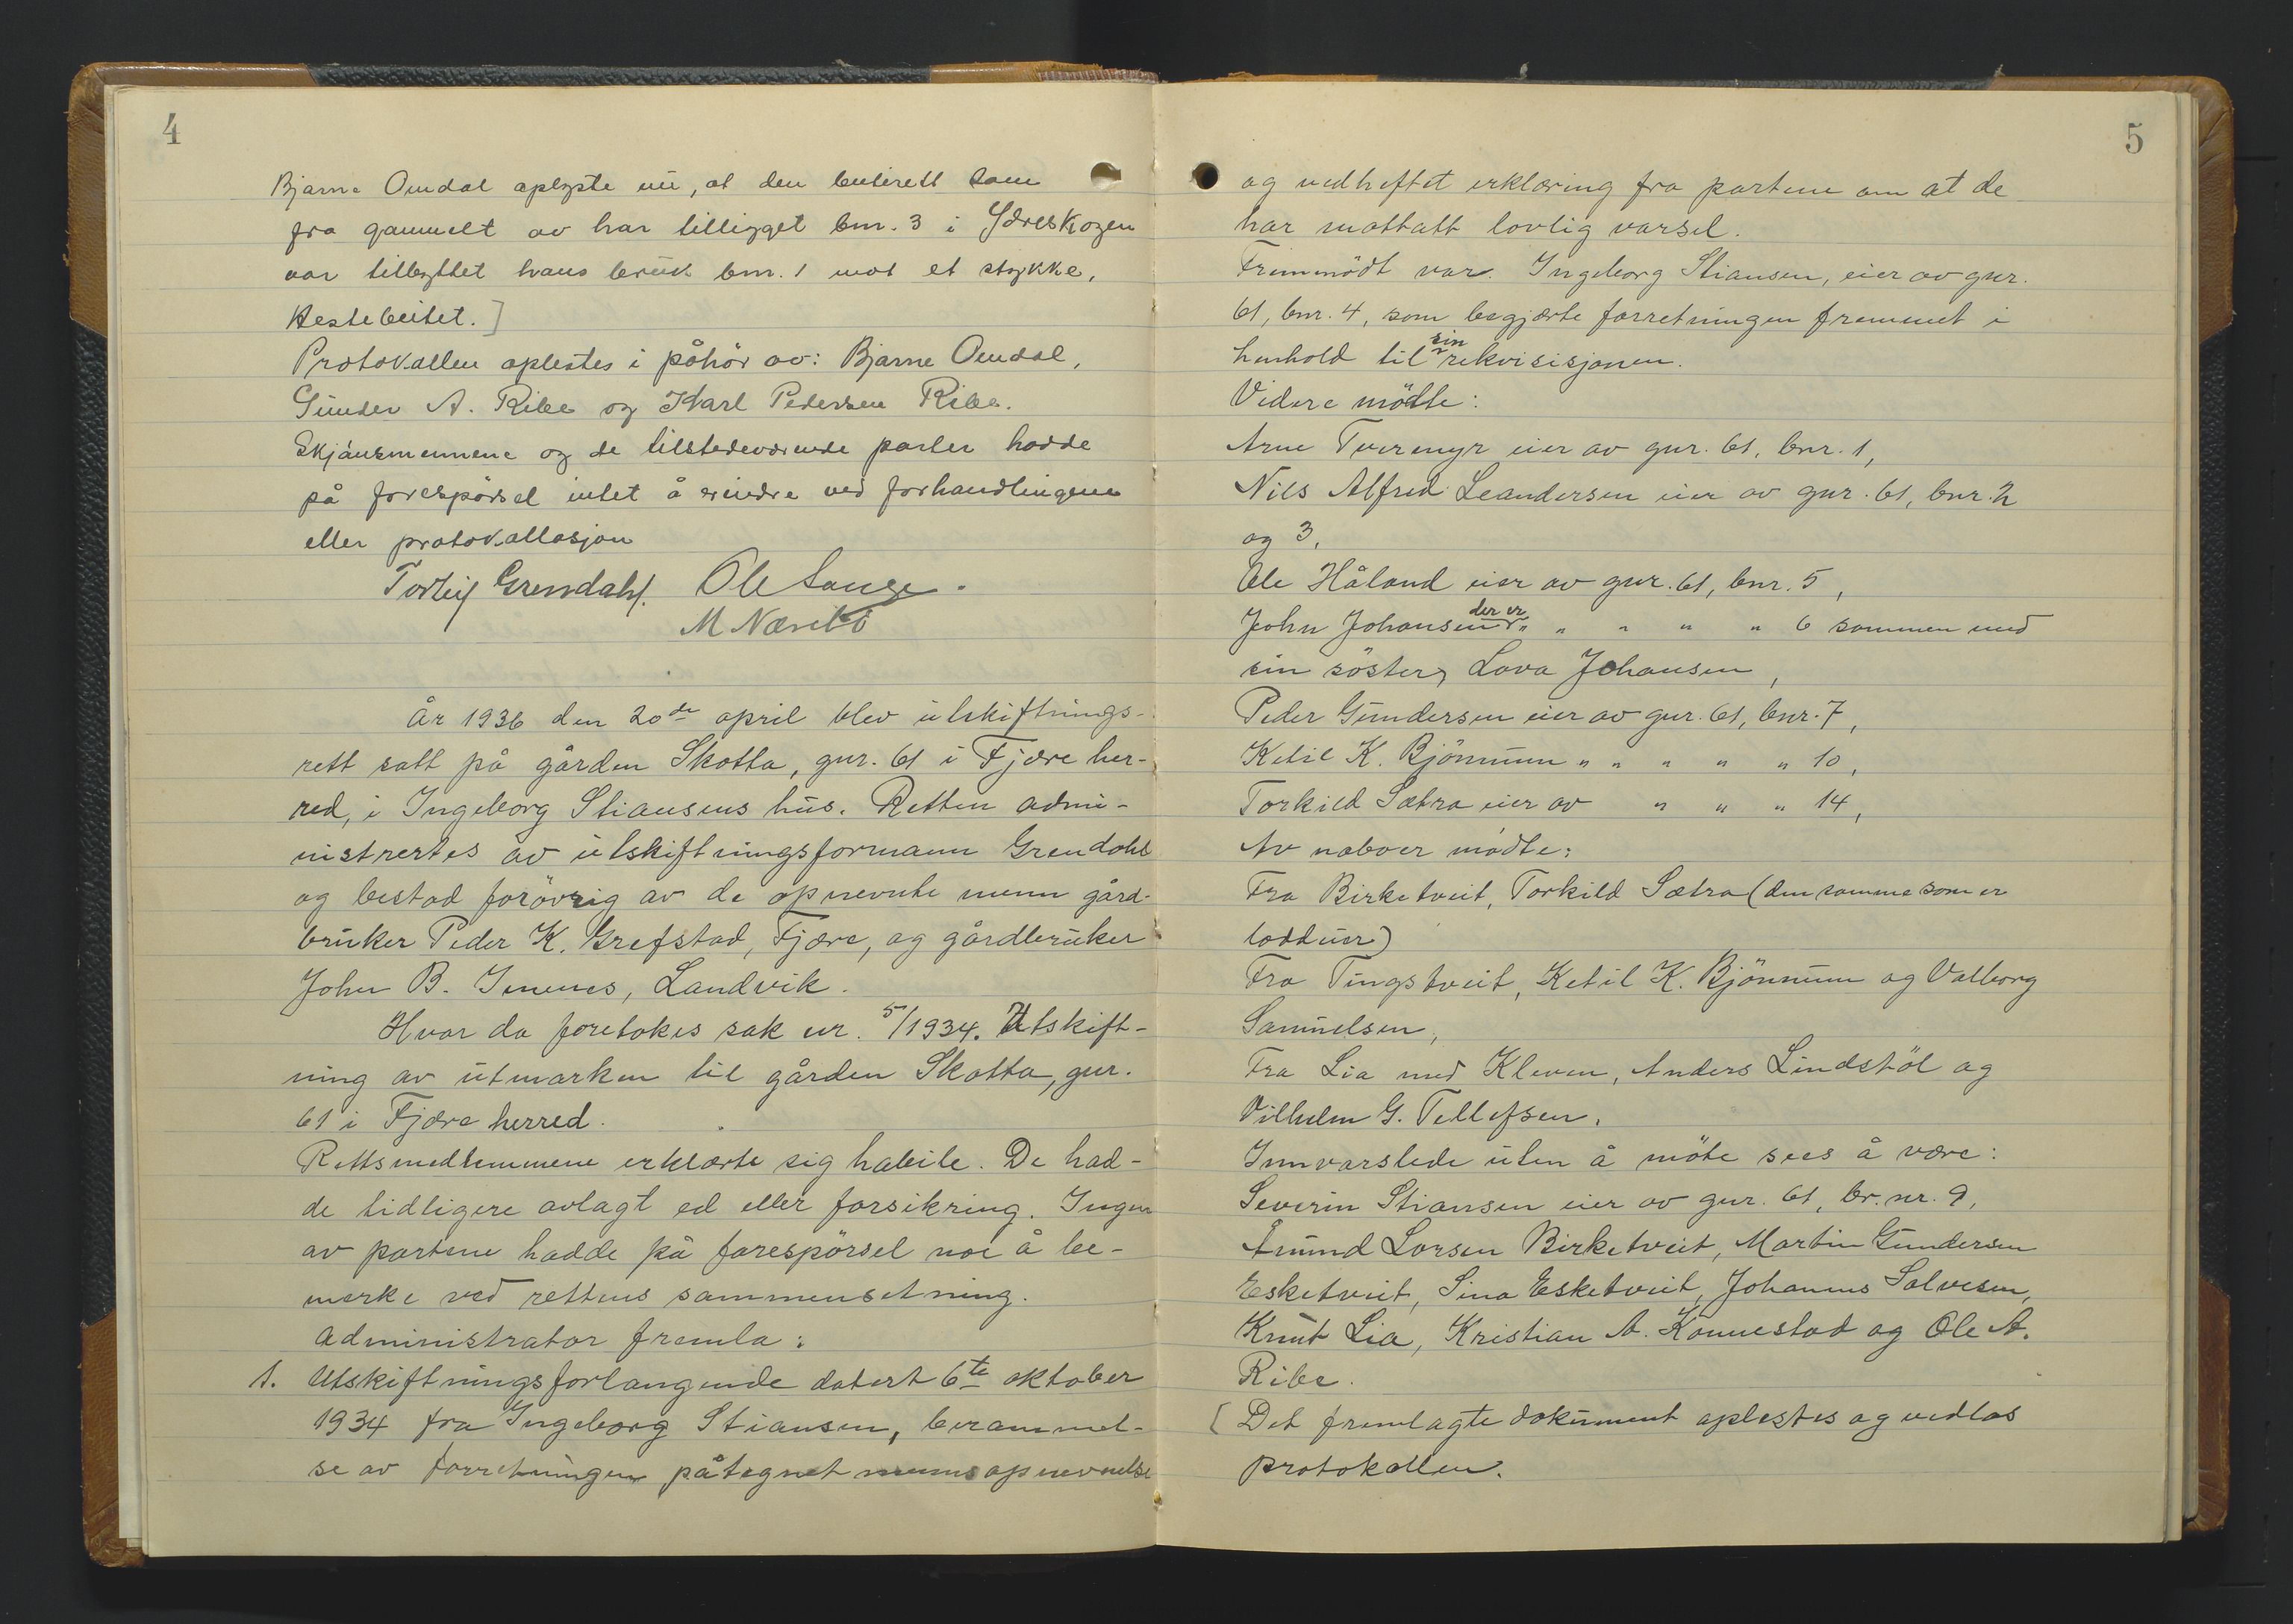 4
Bjarne Omdal oplyste nu, at den beiterett som
fra gammelt av har tilligget bnr. 3 i Ydreskogen
var tilbyttet hans bruk bnr. 1 mot et stykke,
Hestebeitet.]
Protokollen oplestes i påhör av: Bjarne Omdal,
Gunder A. Ribe og Karl Pedersen Ribe.
Skjönsmennene og de tilstedeværende parter hadde
på forespörsel intet å erindre ved forhandlingene
eller protokollasjon
Torleif Grendahl. Ole Lauge.
M Næsebö
År 1936 den 20de april blev utskiftnings-
rett satt på gården Skotta, gnr. 61 i Fjære her-
red, i Ingeborg Stiansens hus. Retten admi-
nistrertes av utskiftningsformann Grendahl
og bestod forövrig av de opnevnte menn gård-
bruker Peder K. Grefstad, Fjære, og gårdbruker
John B. Imenes, Landvik.
Hvor da foretokes sak nr. 5/1934. Utskift-
ning av utmarken til gården Skotta, gnr.
61 i Fjære herred.
Rettsmedlemmene erklærte sig habile. De had-
de tidligere avlagt ed eller forsikring. Ingen
av partene hadde på forespörsel noe å be-
merke ved rettens sammensetning.
Administrator fremla:
1. Utskiftningsforlangende datert 6te oktober
1934 fra Ingeborg Stiansen, berammel-
se av forretningen påtegnet mennsopnevnelse
5
og vedheftet erklæring fra partene om at de
har mottatt lovlig varsel.
Fremmödt var. Ingeborg Stiansen, eier av gnr.
61, bnr. 4, som begjærte forretningen fremmet i
henhold til sin rekvisisjonen.
Videre mödte:
Arne Tveremyr eier av gnr. 61, bnr. 1,
Nils Alfred Leandersen eier av gnr. 61, bnr. 2
og 3,
Ole Håland eier av gnr. 61, bnr. 5,
John Johansen der er " " " " " 6 sammen med
sin söster, Lova Johansen,
Peder Gundersen eier av gnr. 61, bnr. 7,
Ketil K. Bjönnum " " " " " 10,
Torkild Sætra eier av " " " 14,
Av naboer mödte:
Fra Birketveit, Torkild Sætra (den samme som er
loddeier)
Fra Tingstveit, Ketil K. Bjönnum og Valborg
Samuelsen,
Fra Lia med Kleven, Anders Lindstöl og
Vilhelm G. Tellefsen.
Innvarslede uten å möte sees å være:
Severin Stiansen eier av gnr. 61, br.nr. 9,
Åmund Larsen Birketveit, Martin Gundersen
Esketveit, Sina Esketveit, Johannes Salvesen,
Knut Lia, Kristian A. Konnestad og Ole A.
Ribe.
[Det fremlagte dokument oplestes og vedlas
protokollen.